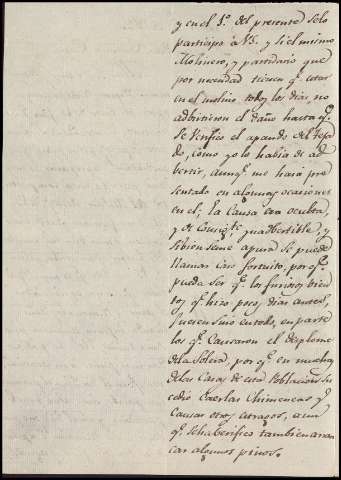 y en el 1º. del presente se lo
participo à VS. y si el mismo
Molinero, y partidario que
por necesidad tienen q.e estar
en el molino todos los dias, no
adbirtieron el daño hasta q.e
se verifico el apando del Teja
do, como yo lo habia de ad
bertir, aunq.e me haia pre
sentado en algunas ocaciones
en el; la Causa era oculta,
y de Consig.te ynadbertible, y
si bien se me apura se puede
llamar caso fortuito, por q.e
pueda ser q.e los furiosos bien
tos q.e hizo pocos dias antes,
fuesen sino en todo, en parte
los q.e Causaron el desplome
de la Solera, por q.e en muchas
de las Casas de esta Poblacion su
cedio Caerlas Chimeneas y
Causar otros atrasos, a un
q.e se ha berifico tambien arran
car algunos pinos.